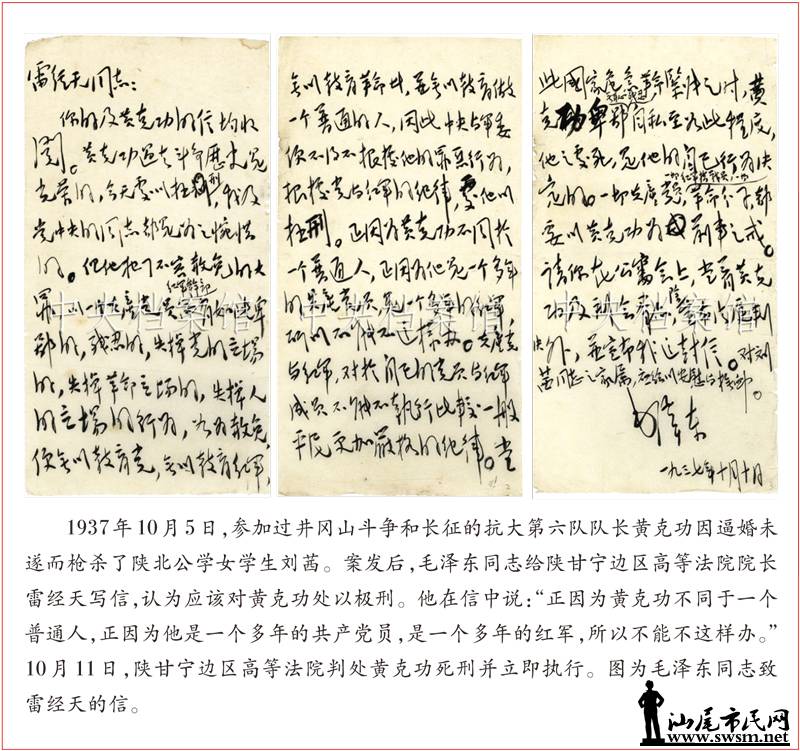 雷经天同志：
你的及黄克功的信均收
阅。黄克功过去斗争历史是
光荣的，今天处以极刑，我及
党中央的同志都是为之惋惜
的。但他犯了不容赦免的大
罪，以一个共产党员红军干部而有如此卑
鄙的，残忍的，失掉党的立场
的，失掉革命立场的，失掉人
的立场的行为，如为赦免，
便无以教育党，无以教育红军，
无以教育革命者，并无以教育做
一个普通的人，因此中央与军委
便不得不根据他的罪恶行为，
根据党与红军的纪律，处他以
极刑。正因为黄克功不同于
一个普通人，正因为他是一个多年
的共产党员，是一个多年的红军，
所以不能不这样办。共产党
与红军，对于自己的党员与红军
成员不能不执行比较一般
平民更加严格的纪律。当
此國家危急革命緊张之时，黄
克功卑鄙无耻残忍自私至如此程度，
他之处死，是他的自己行为决
定的。一切共产党员，一切红军指战员，一切革命分子，都
要以黄克功为前车之戒。
请你在公审会上，当着黄克
功及到会群众，除宣布法庭判
决外，并宣布我这封信。对刘
茜同志之家属，应给以安慰与抚恤。
毛泽东
一九三七年十月十日
中央档案馆
中央档案馆
中央档案馆
1937年10月5日，参加过井冈山斗争和长征的抗大第六队队长黄克功因逼婚未
遂而枪杀了陕北公学女学生刘茜。案发后，毛泽东同志给陕甘宁边区高等法院院长
雷经天写信，认为应该对黄克功处以极刑。他在信中说：“正因为黄克功不同于一个
普通人，正因为他是一个多年的共产党员，是一个多年的红军，所以不能不这样办。”
10月11日，陕甘宁边区高等法院判处黄克功死刑并立即执行。图为毛泽东同志致
雷经天的信。
汕尾市民网
www.swsm.net